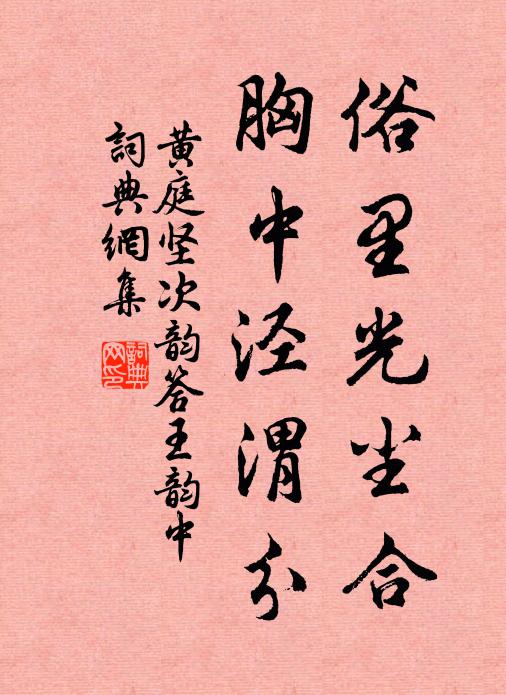 俗里光尘合
胸中泾渭分
黄庭坚次韵答王韵中
詞典網集
詞典网印